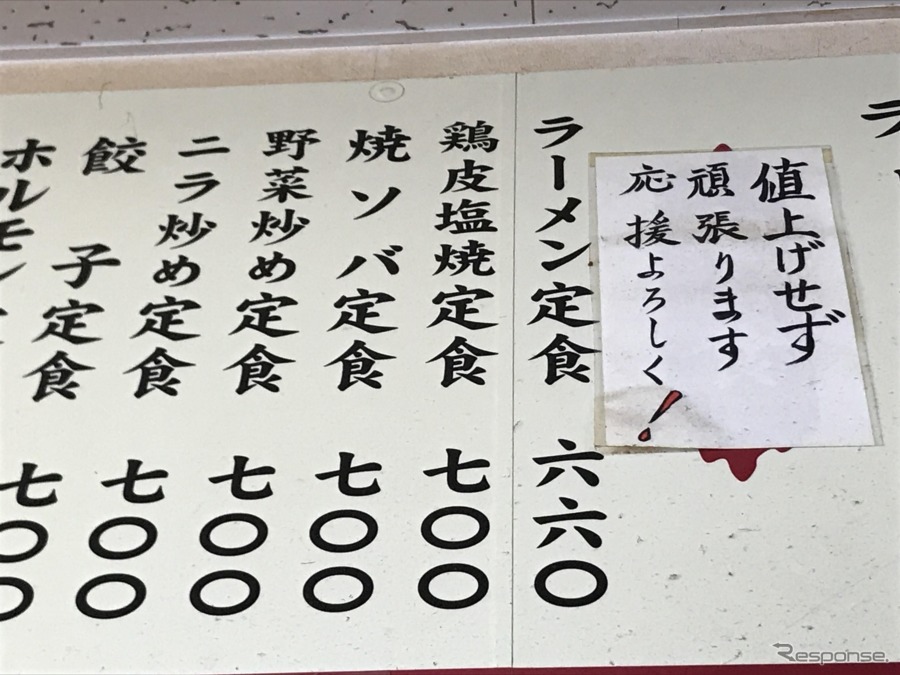 値上げせず
頑張ります
応援よろしく!
ラーメン定食 六六〇
鶏皮塩焼定食 七〇〇
焼ソバ定食 七〇〇
野菜炒め定食 七〇〇
ニラ炒め定食 七〇〇
餃子定食 七〇〇
ホルモン 七〇〇
Response.